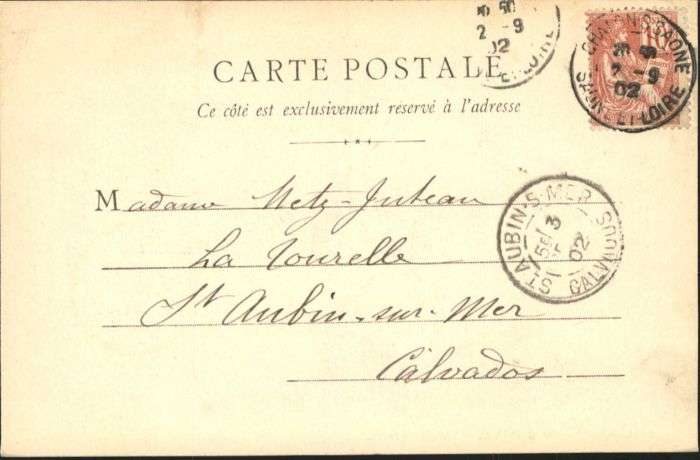 CARTE POSTALE
Ce côté est exclusivement réservé à l'adresse
Madame Metz-Juteau
La Tourelle
St Aubin-sur-Mer
Calvados
CHALON S SAONE
2 -9
02
SAONE-ET-LOIRE
2 -9
02
ET-LOIRE
ST AUBIN-S-MER
3
SEPT
02
CALVADOS